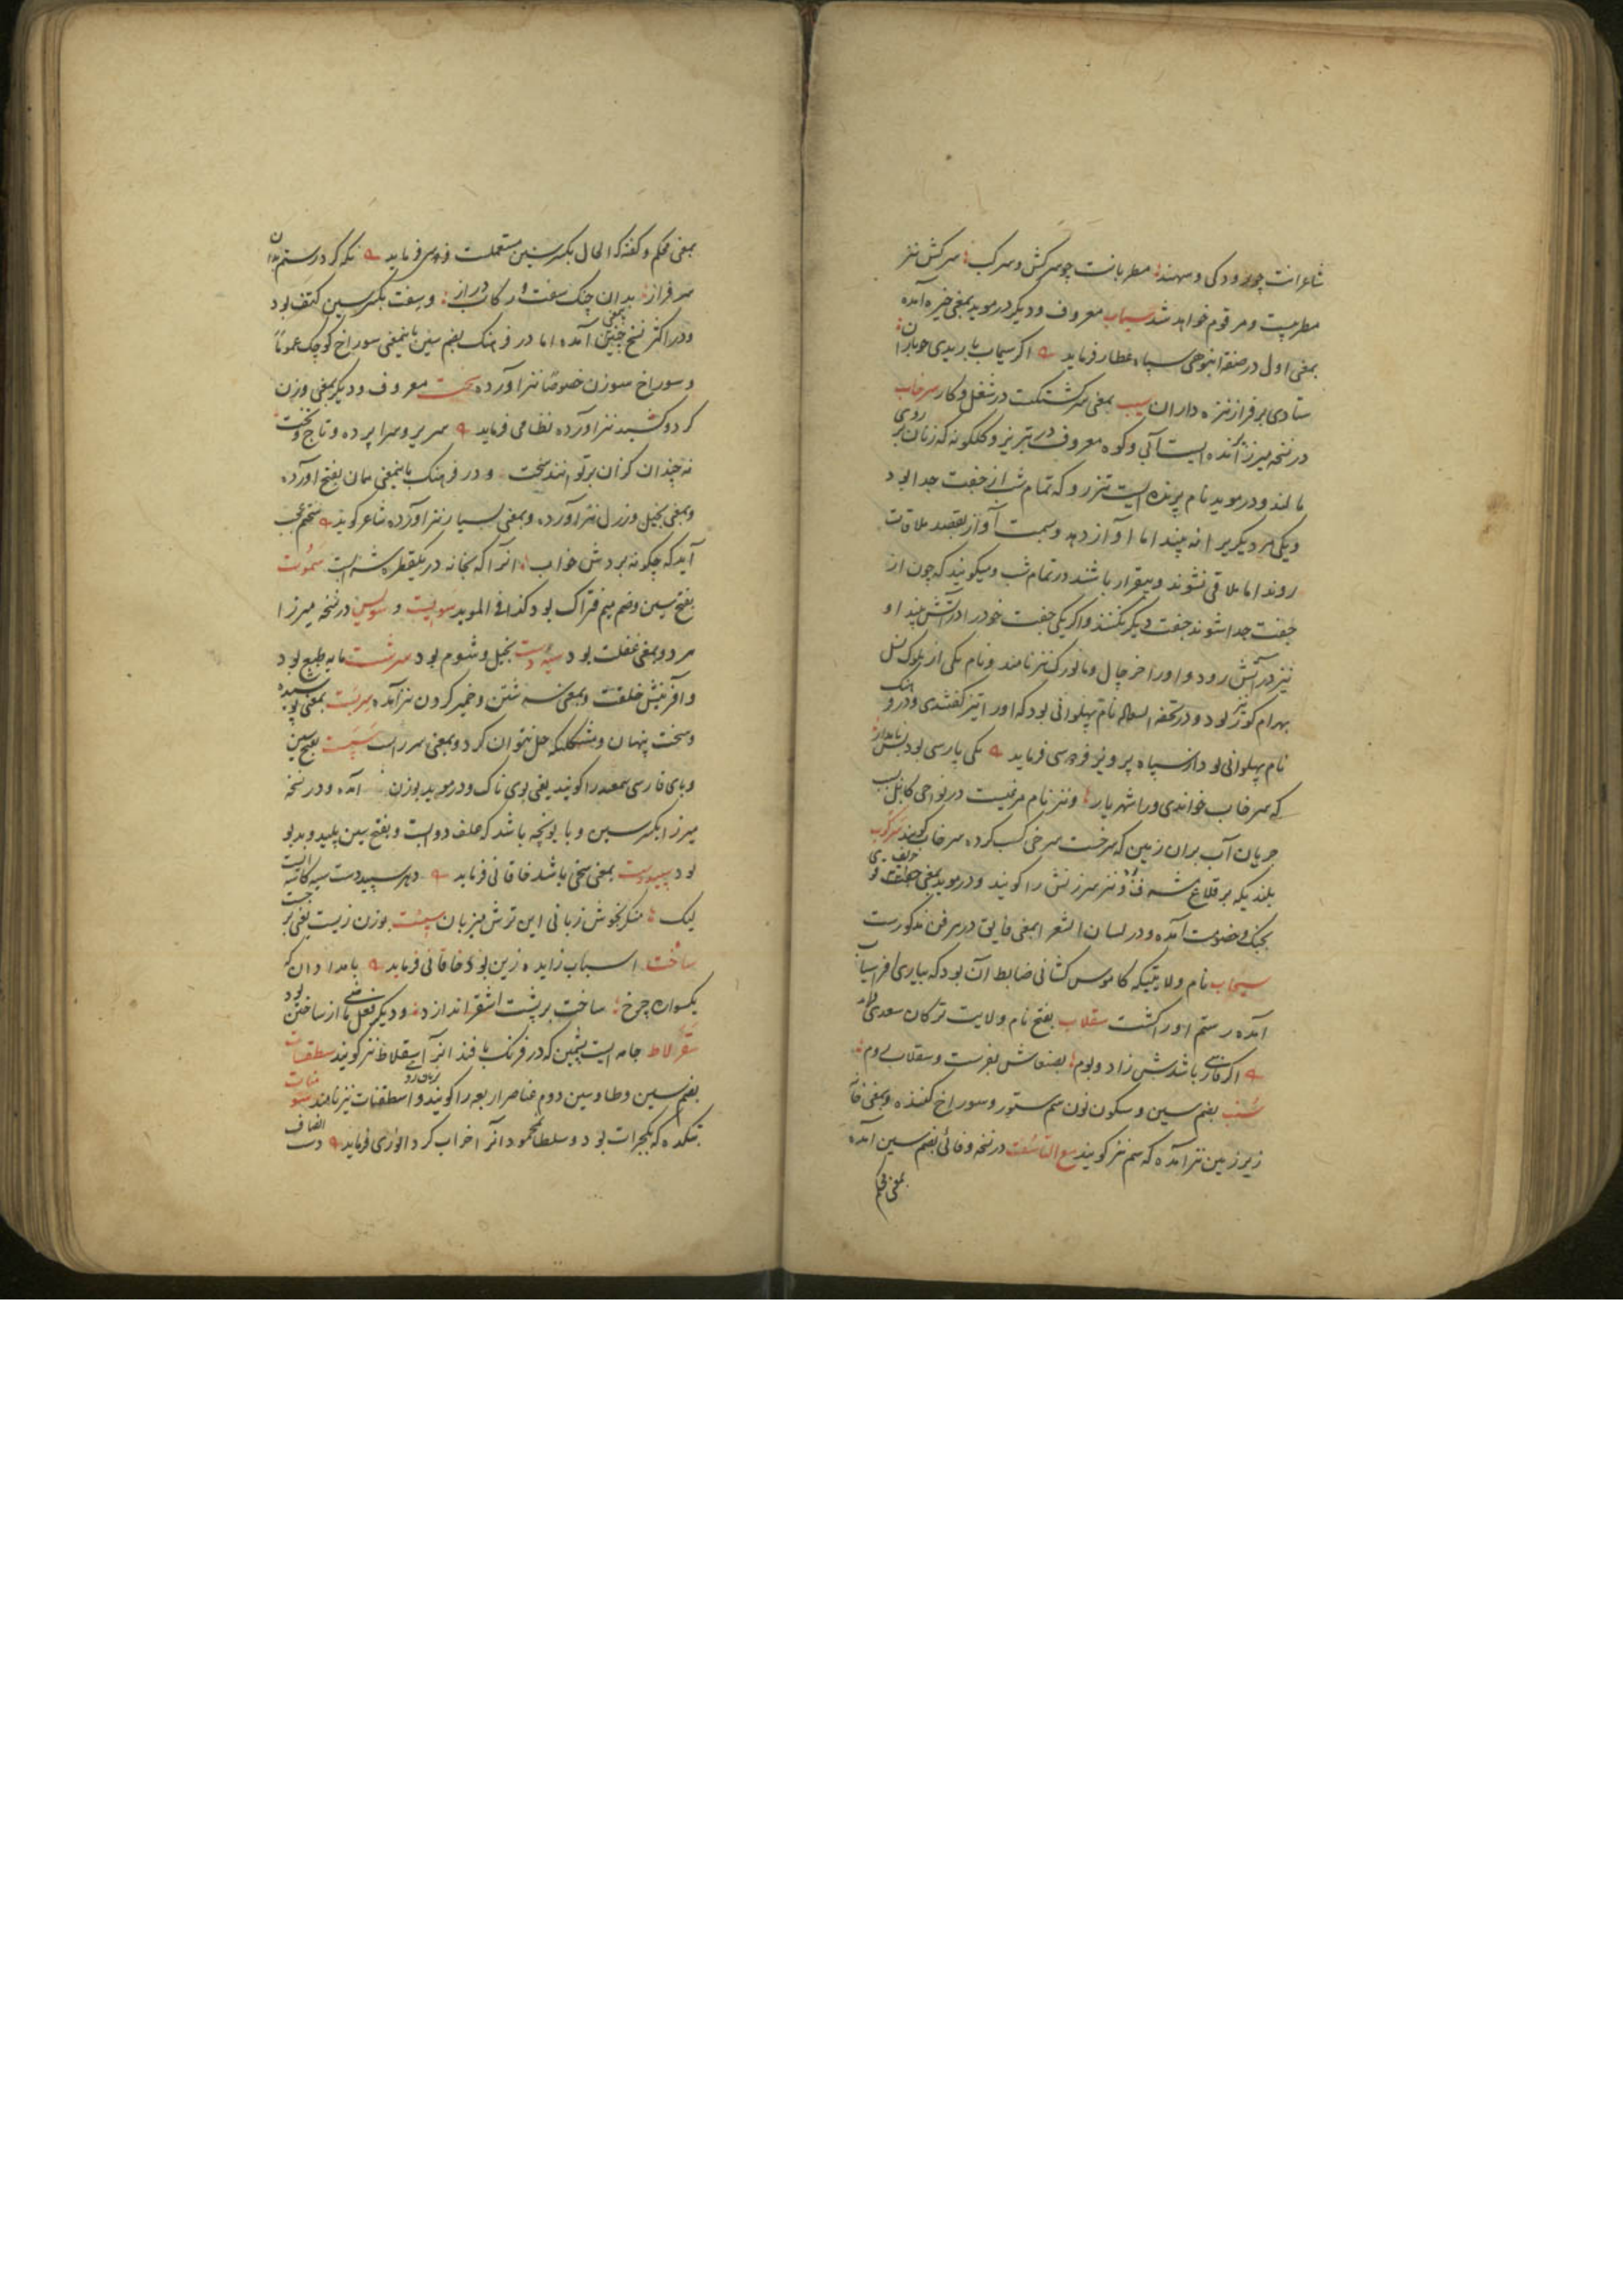 شاعرانت چو رودکی و مهند مطربانت چو سرکش و سرکب سرکش نیز
مطربیست و مرقوم خواهد شد سیماب معروف و دیگر در موید بمعنی خیره آمده
بمعنی اول در صفة انبوهی سپاه عطار فرماید اگر سیماب باریدی چو باران
ستادی بر فراز نیزه داران سیب بمعنی سرگشتگی در شغل و کار سرخاب
در نسخه میرزا پرنده ایست آبی و کوه معروف در تبریز و گلگونه که زنان بر روی
مالند و در موید نام پرنده ایست تزرو که تمام شب از جفت جدا بود
و یکی مر دیگریرا نه بیند اما آواز دهد و سمت آواز بقصد ملاقات
روند اما ملاقی نشوند و بیقرار باشند در تمام شب و میگویند که چون از
جفت جدا شوند جفت دیگر نکنند و اگر یکی جفت خود را در آتش بیند او
نیز در آتش رود و او را خرچال و مانورک نیز نامند و نام یکی از ملوک نسل
بهرام گور نیز بود و در تحفه السعاده نام پهلوانی بود که او را تیر کفتندی و در فرهنگ
نام پهلوانی بود از سپاه پرویز فردوسی فرماید یکی پارسی بود بس نامدار
که سرخاب خواندی ورا شهریار و نیز نام مرغیست در نواحی کابل سبب
جریان آب بران زمین که سرخست سرخی کسب کرده سرخاب گویند سرکوب
بلندیکه بر قلاع مشرف بود و نیز سرزنش را گویند و در موید بمعنی حریف
بجنگ و خصومت آمده و در لسان الشعرا بمعنی فایق در هر فن مذکورست
سیجاب نام ولایتیکه کاموس کشانی ضابط آن بود که بیاری افراسیاب
آمده رستم او را کشت سقلاب بفتح نام ولایت ترکان سعدی فرماید
اگر پارسی باشدش زاد و بوم بصنعاش بفرست و سقلاب و روم
سنب بضم سین و سکون نون سم ستور و سوراخ کننده و بمعنی خانه
زیر زمین نیز آمده که سم نیز گویند مع التا سفت در نسخه وفائی بضم سین آمده
بمعنی محکم
بمعنی محکم و گفته که الحال بکسر سین مستعملست فردوسی فرماید نگه کرد رستم بدان
سرفراز بدان چنگ سفت و رکاب دراز و سفت بکسر سین کتف بود
و در اکثر نسخ چنین آمده اما در فرهنگ بضم سین باینمعنی سوراخ کوچک عموماً
و سوراخ سوزن خصوصاً نیز آورده سخت معروف و دیگر بمعنی وزن
کرد و کشید نیز آورده نظامی فرماید سریر و سراپرده و تاج و تخت
نه چندان گران بر توانند سخت و در فرهنگ باینمعنی همان بفتح آورده
و بمعنی بخیل و زرل نیز آورده و بمعنی بسیار نیز آورده شاعر گوید سختم عجب
آید که چگونه بردش خواب آنرا که بخانه در یکقطره شرابست سموت
بفتح سین و ضم میم فتراک بود کذا فی الموید سوایت و سولس در نسخه میرزا
مرد و بمعنی غفلت بود سیه دست بخیل و شوم بود سرشت مایه طبع بود
و آفرینش خلقت و بمعنی سرشتن و خمیر کردن نیز آمده سربست بمعنی پوشیده
و سخت پنهان و مشکلیکه حل نتوان کرد و بمعنی سرراست سپست بفتح سین
و بای فارسی سمعه را گویند یعنی بوی ناک و در موید بوزن آمده و در نسخه
میرزا بکسر سین و با یونجه باشد که علف دوابست و بفتح سین پلید و بد بو
بود سپیددست بمعنی سخی باشد خاقانی فرماید دهر سپید دست سیه کاسه است
لیک منگر بخوش زبانی این ترش میزبان سیست بوزن زیست یعنی بر جست
ساخت اسباب زایده زین بود خاقانی فرماید بامدادان که
یکسواره چرخ ساخت بر پشت اشقر اندازد و دیگر فعل ماضی از ساختن بود
سقرلاط جامه ایست پشمین که در فرنگ بافند آنرا سقلاط نیز گویند سطقسات
بضم سین و طا و سین دوم عناصر اربعه را گویند و اسطقسات نیز نامند سومنات
بتکده که بکجرات بود و سلطان محمود آنرا خراب کرد انوری فرماید دست انصاف